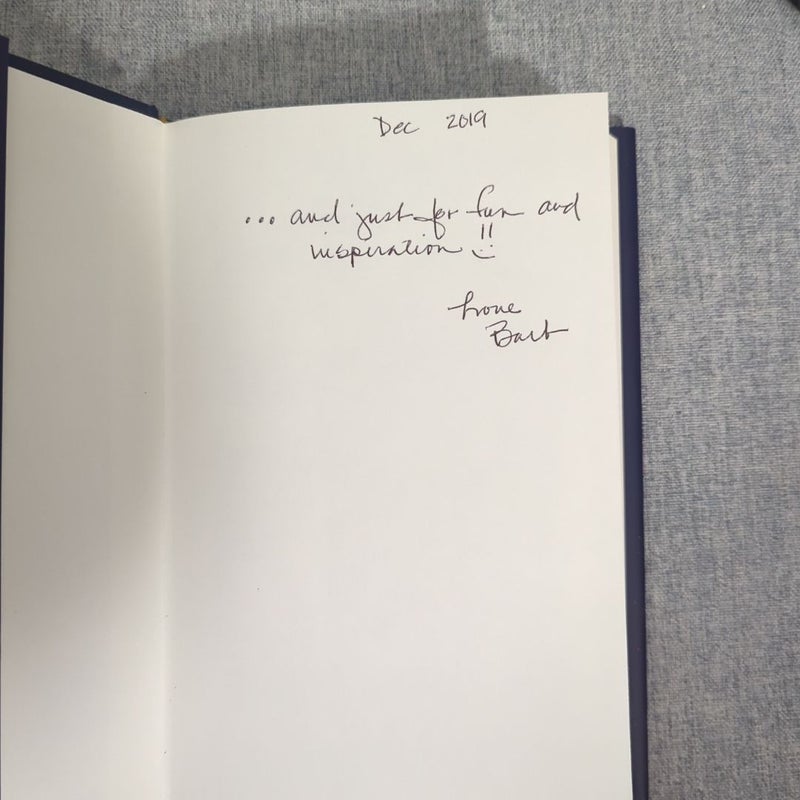 Dec 2019
... and just for fun and
inspiration !!
Love
Barb